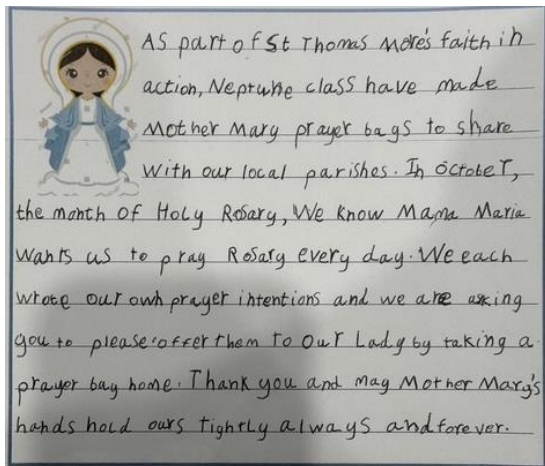 As part of St Thomas More's faith in
action, Neptune class have made
Mother Mary prayer bags to share
With our local parishes. In October,
the month of Holy Rosary, We know Mama Maria
wants us to pray Rosary every day. We each
wrote our own prayer intentions and we are asking
you to please offer them to our Lady by taking a
prayer bag home. Thank you and may Mother Mary's
hands hold ours tightly always and forever.